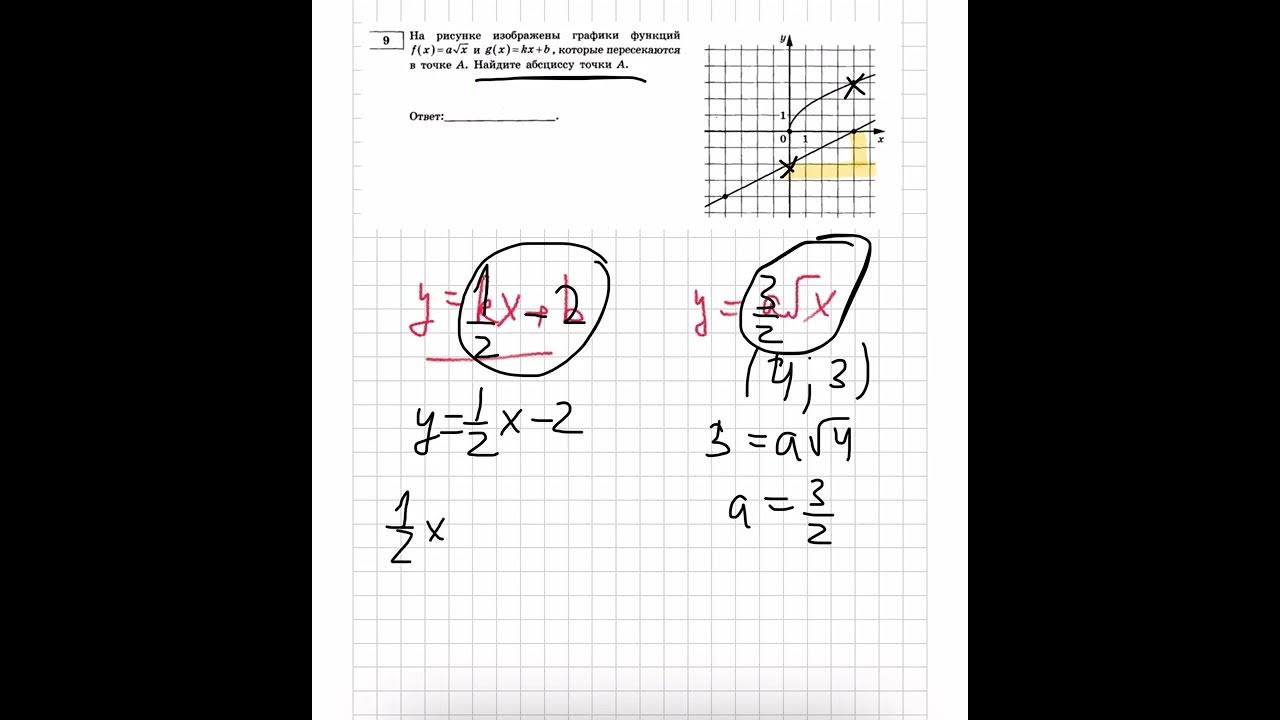 9 На рисунке изображены графики функций
f(x)=a√x и g(x)=kx+b, которые пересекаются
в точке A. Найдите абсциссу точки A.
Ответ:
y
1
0 1 x
y = 1/2 x - 2
y = 3/2 √x
(4; 3)
y = 1/2 x - 2
3 = a√4
a = 3/2
1/2 x